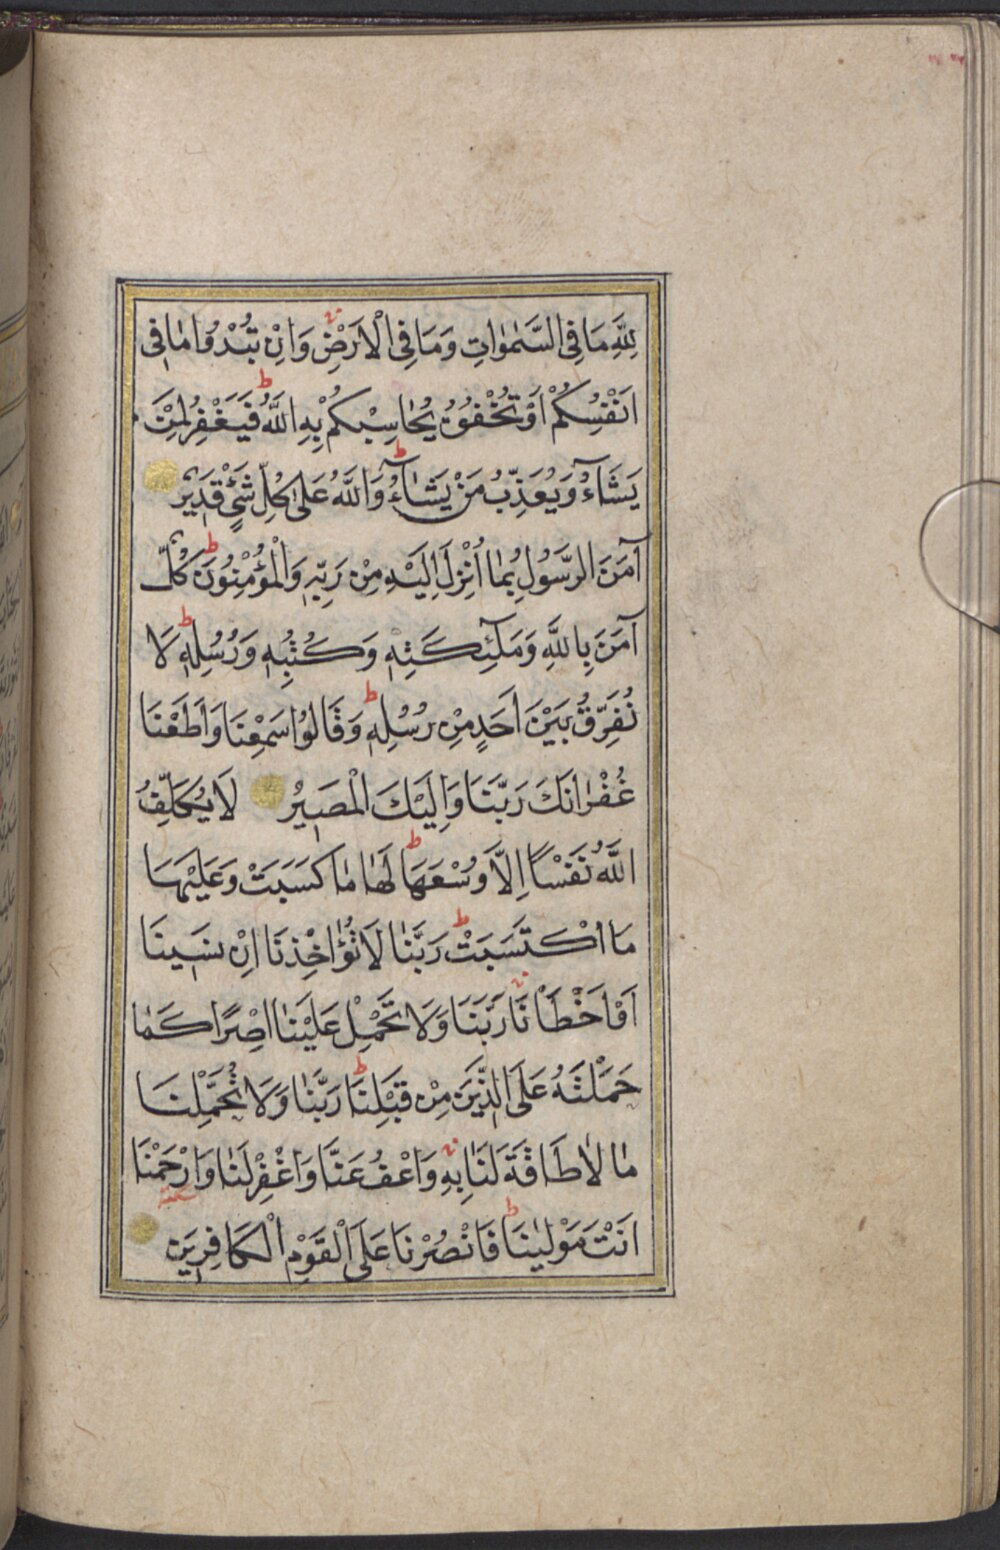 لِلَّهِ مَا فِى السَّمٰوَاتِ وَمَا فِى الْاَرْضِ وَاِنْ تُبْدُوا مَا فٖى
اَنْفُسِكُمْ اَوْ تُخْفُوهُ يُحَاسِبْكُمْ بِهِ اللَّهُ فَيَغْفِرُ لِمَنْ
يَشَاءُ وَيُعَذِّبُ مَنْ يَشَاءُ وَاللَّهُ عَلٰى كُلِّ شَىْءٍ قَدِيرٌ
آمَنَ الرَّسُولُ بِمَا اُنْزِلَ اِلَيْهِ مِنْ رَبِّهٖ وَالْمُؤْمِنُونَ كُلٌّ
آمَنَ بِاللَّهِ وَمَلٰٓئِكَتِهٖ وَكُتُبِهٖ وَرُسُلِهٖ لَا
نُفَرِّقُ بَيْنَ اَحَدٍ مِنْ رُسُلِهٖ وَقَالُوا سَمِعْنَا وَاَطَعْنَا
غُفْرَانَكَ رَبَّنَا وَاِلَيْكَ الْمَصِيرُ لَا يُكَلِّفُ
اللَّهُ نَفْسًا اِلَّا وُسْعَهَا لَهَا مَا كَسَبَتْ وَعَلَيْهَا
مَا اكْتَسَبَتْ رَبَّنَا لَا تُؤَاخِذْنَا اِنْ نَسِينَا
اَوْ اَخْطَاْنَا رَبَّنَا وَلَا تَحْمِلْ عَلَيْنَا اِصْرًا كَمَا
حَمَلْتَهُ عَلَى الَّذِينَ مِنْ قَبْلِنَا رَبَّنَا وَلَا تُحَمِّلْنَا
مَا لَا طَاقَةَ لَنَا بِهٖ وَاعْفُ عَنَّا وَاغْفِرْ لَنَا وَارْحَمْنَا
اَنْتَ مَوْلٰينَا فَانْصُرْنَا عَلَى الْقَوْمِ الْكَافِرِينَ